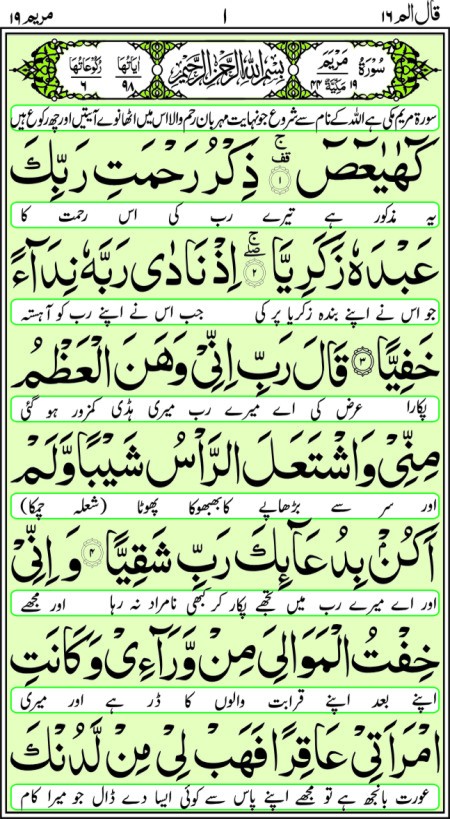 قال الم ۱۶ ۱ مریم ۱۹
سُوْرَۃُ مَرْیَمَ ۱۹ مَکِّیَّۃٌ ۴۴ بِسْمِ اللهِ الرَّحْمٰنِ الرَّحِیْمِ اٰیَاتُھَا ۹۸ رُکُوْعَاتُھَا ۶
سورۃ مریم مکی ہے اللہ کے نام سے شروع جو نہایت مہربان رحم والا اس میں اٹھانوے آیتیں اور چھ رکوع ہیں
کٓھٰیٰعٓصٓ ۚقف ۱ ذِکْرُ رَحْمَتِ رَبِّکَ
یہ مذکور ہے تیرے رب کی اس رحمت کا
عَبْدَہٗ زَکَرِیَّا ۚۖ ۲ اِذْ نَادٰی رَبَّہٗ نِدَآءً
جو اس نے اپنے بندہ زکریا پر کی جب اس نے اپنے رب کو آہستہ
خَفِیًّا ۳ قَالَ رَبِّ اِنِّیْ وَھَنَ الْعَظْمُ
پکارا عرض کی اے میرے رب میری ہڈی کمزور ہو گئی
مِنِّیْ وَاشْتَعَلَ الرَّاْسُ شَیْبًا وَّلَمْ
اور سر سے بڑھاپے کا بھبھوکا پھوٹا (شعلہ چمکا)
اَکُنْۢ بِدُعَآئِکَ رَبِّ شَقِیًّا ۴ وَ اِنِّیْ
اور اے میرے رب میں تجھے پکار کر کبھی نامراد نہ رہا اور مجھے
خِفْتُ الْمَوَالِیَ مِنْ وَّرَآءِیْ وَکَانَتِ
اپنے بعد اپنے قرابت والوں کا ڈر ہے اور میری
امْرَاَتِیْ عَاقِرًا فَھَبْ لِیْ مِنْ لَّدُنْکَ
عورت بانجھ ہے تو مجھے اپنے پاس سے کوئی ایسا دے ڈال جو میرا کام